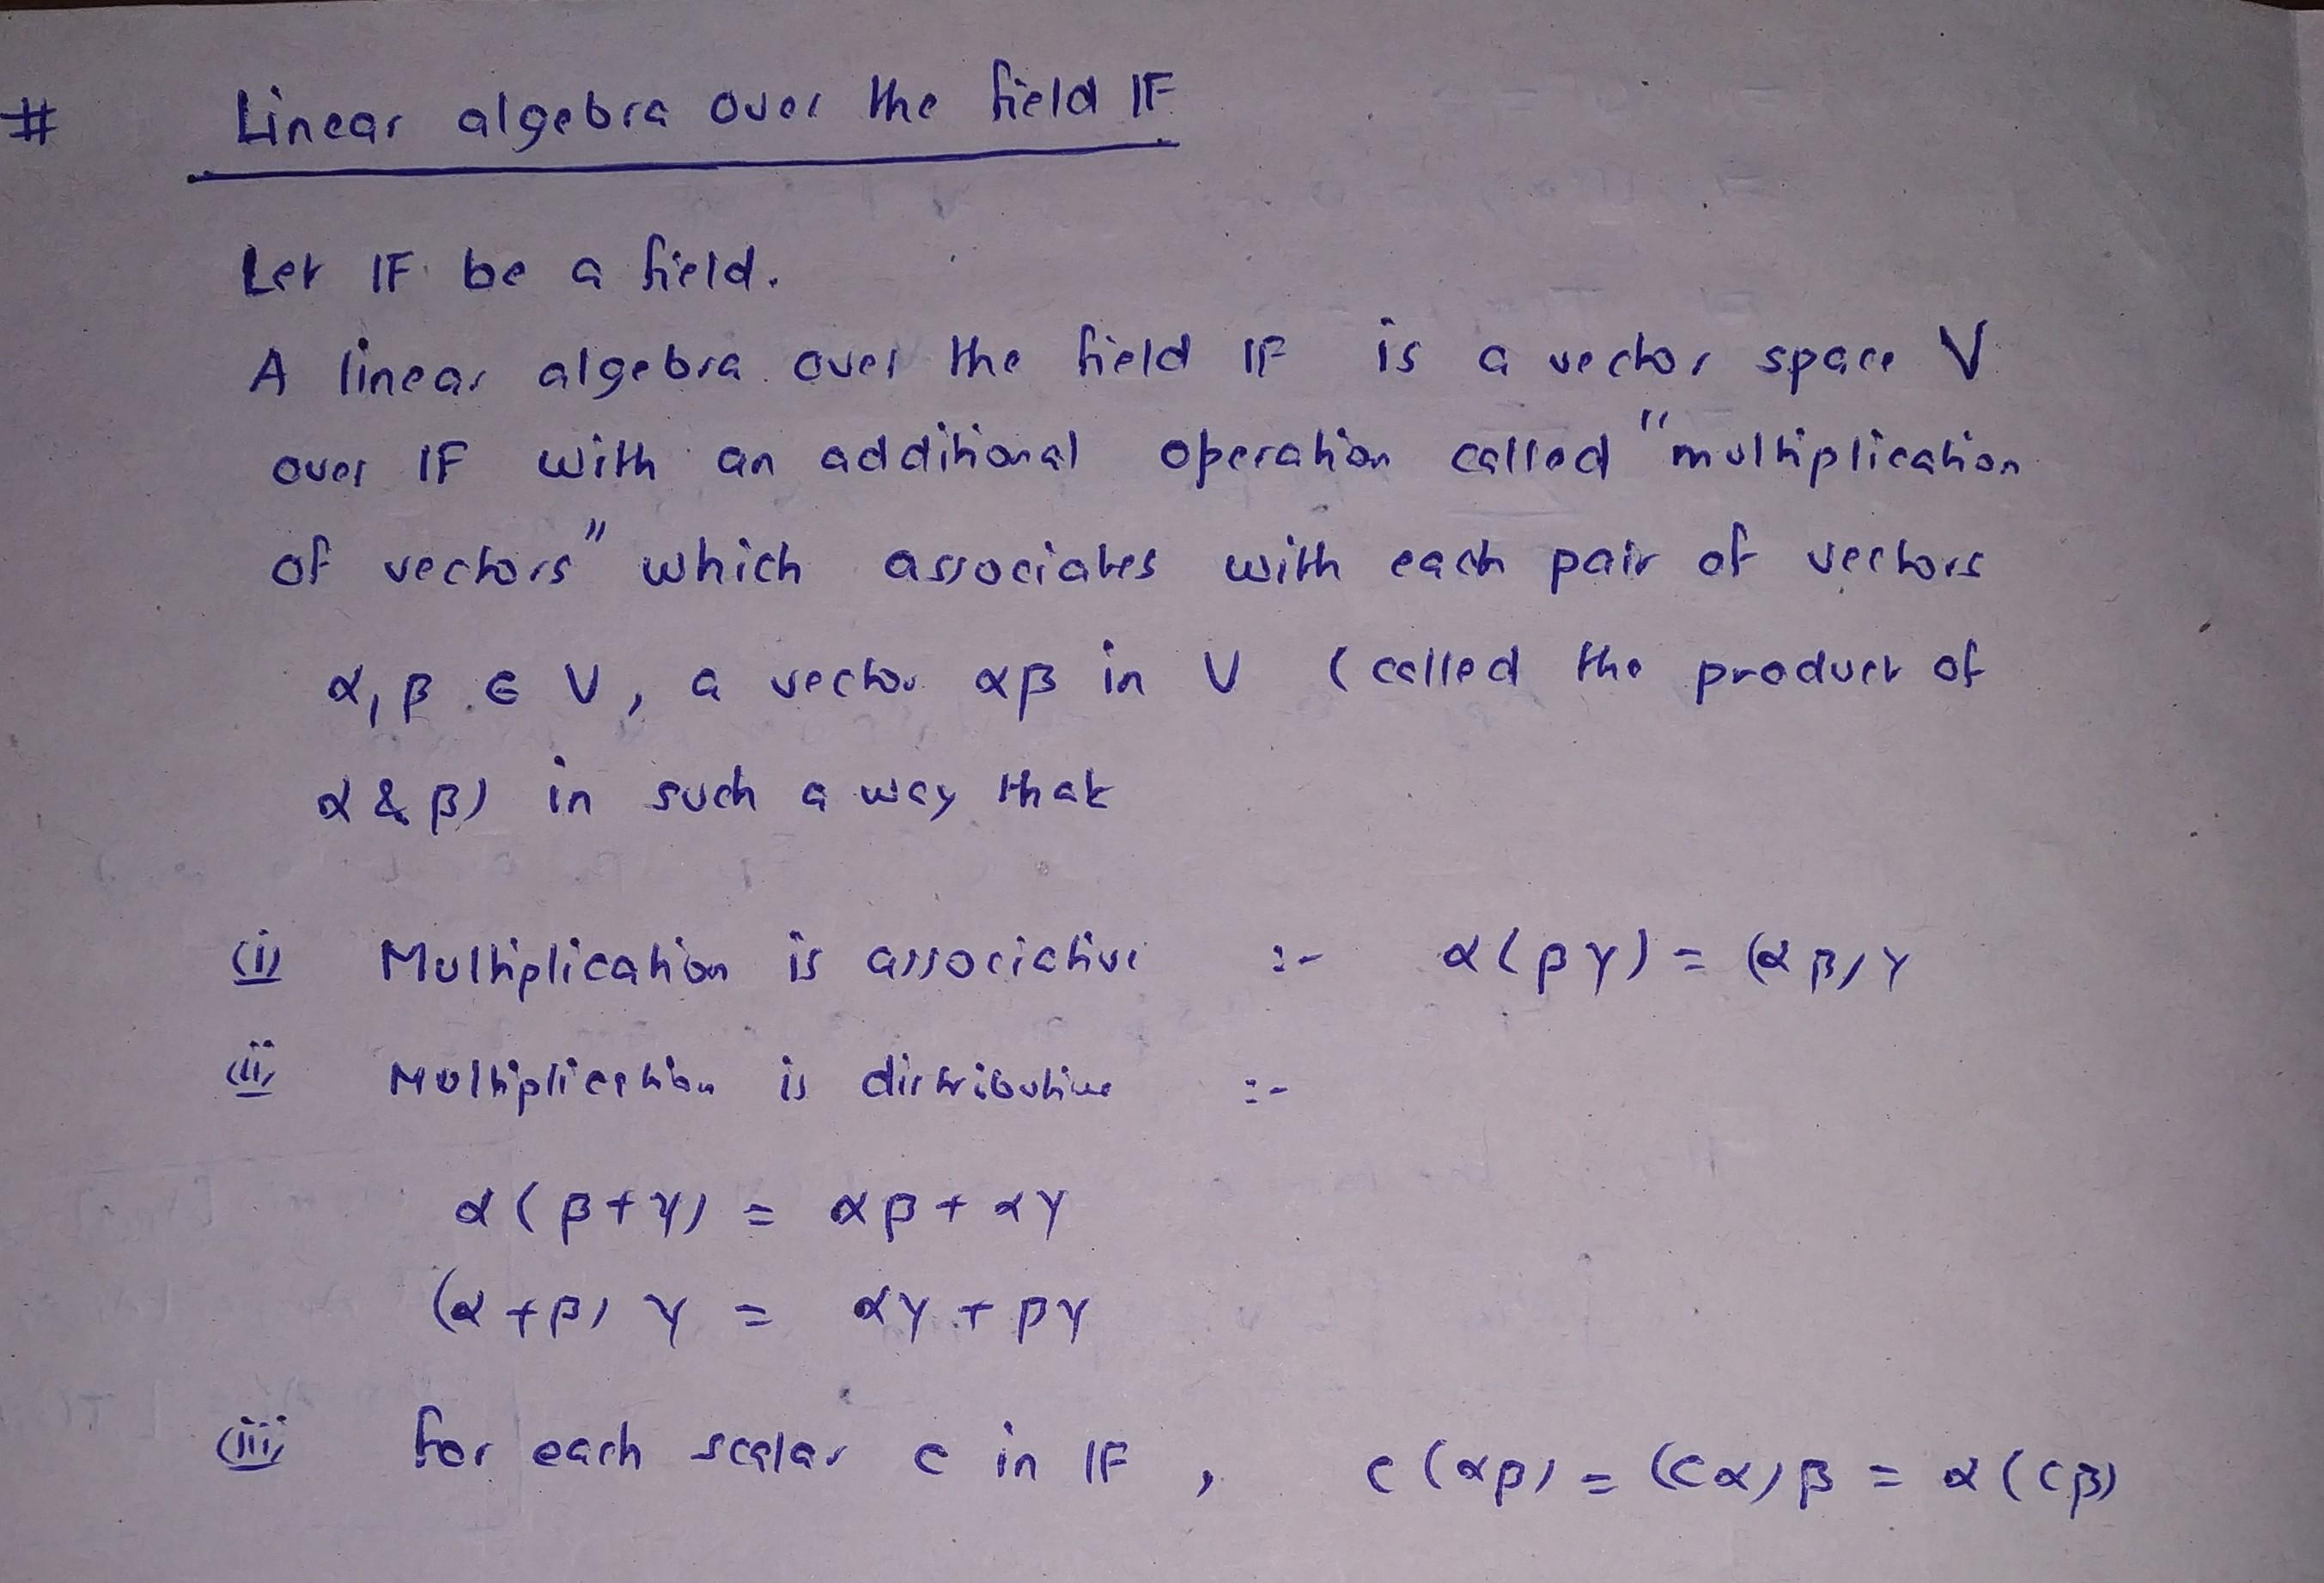 # Linear algebra over the field IF
Let IF be a field.
A linear algebra over the field IF is a vector space V
over IF with an additional operation called "multiplication
of vectors" which associates with each pair of vectors
α, β ∈ V, a vector αβ in V (called the product of
α & β) in such a way that
(i) Multiplication is associative :- α(βγ) = (αβ)γ
(ii) Multiplication is distributive :-
α(β+γ) = αβ + αγ
(α+β)γ = αγ + βγ
(iii) for each scalar c in IF, c(αβ) = (cα)β = α(cβ)